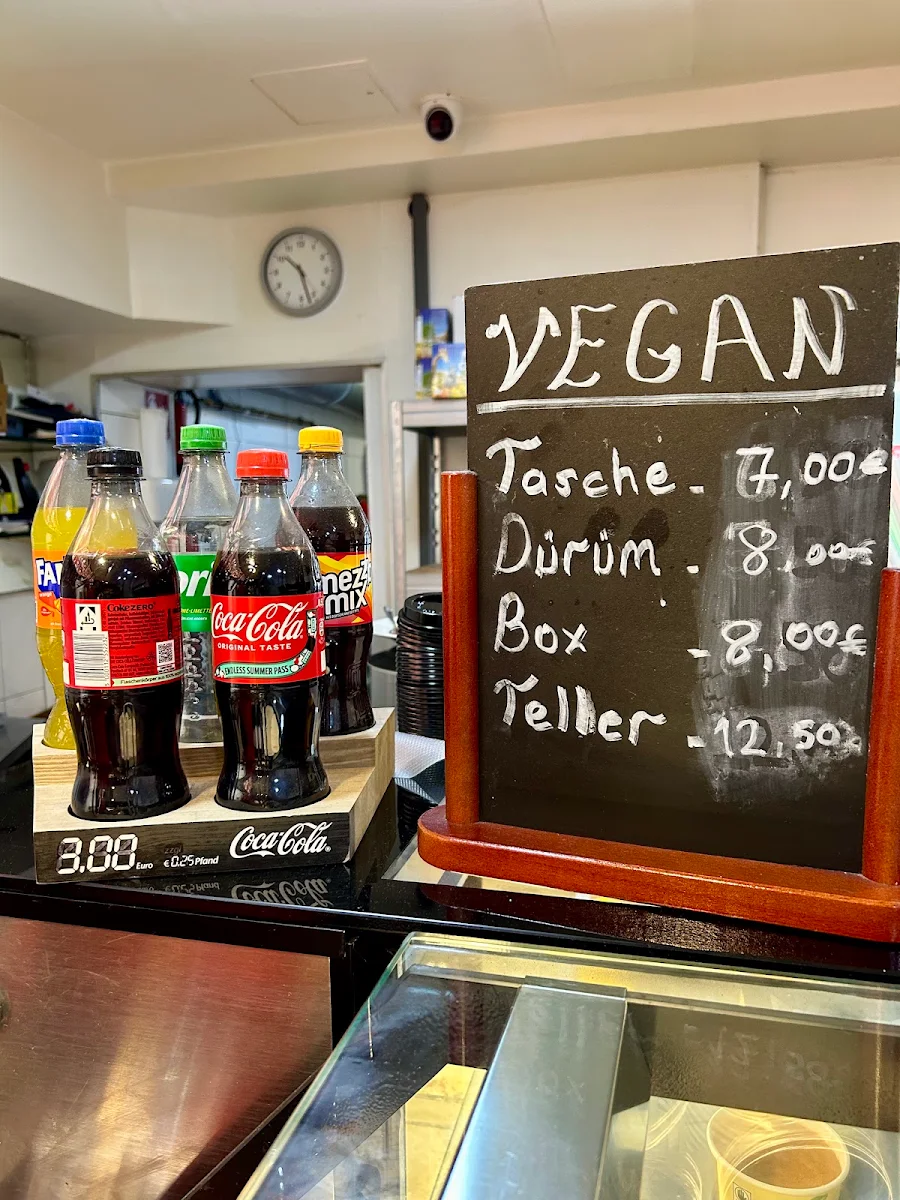 VEGAN
Tasche - 7,00€
Dürüm - 8,00€
Box - 8,00€
Teller - 12,50
FA
Coke ZERO
Coca-Cola
ORIGINAL TASTE
ENDLESS SUMMER PASS
mezz
mix
3.00 Euro zzgl € 0.25 Pfand Coca-Cola